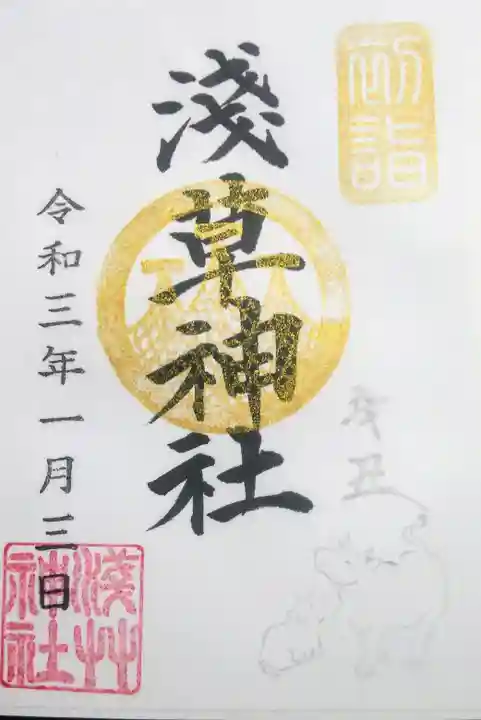 初詣
淺草神社
令和三年一月三日
辛丑
淺草
神社